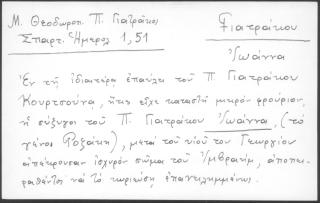 Μ. Θεόδωροπ. Π. Γιατράκος
Σπαρτ. Ἡμερολ 1, 51
Γιατράκου
Ἰωάννα
Ἐν τῇ ἰδιαιτέρᾳ ἐπαύλει τοῦ Π Γιατράκου
Κουρτσούνα, ἥτις εἶχε καταστῆ μικρόν φρούριον,
ἡ σύζυγος τοῦ Π Γιατράκου Ἰωάννα, (τό
γένος Ροζάκη), μετά τοῦ υἱοῦ του Γεωργίου
ἀπέκρουσαν ἰσχυρόν σῶμα τοῦ Ἰμβραήμ, ἀποπει-
ραθέντος νά τό κυριεύσῃ ἐπανειλημμένως.